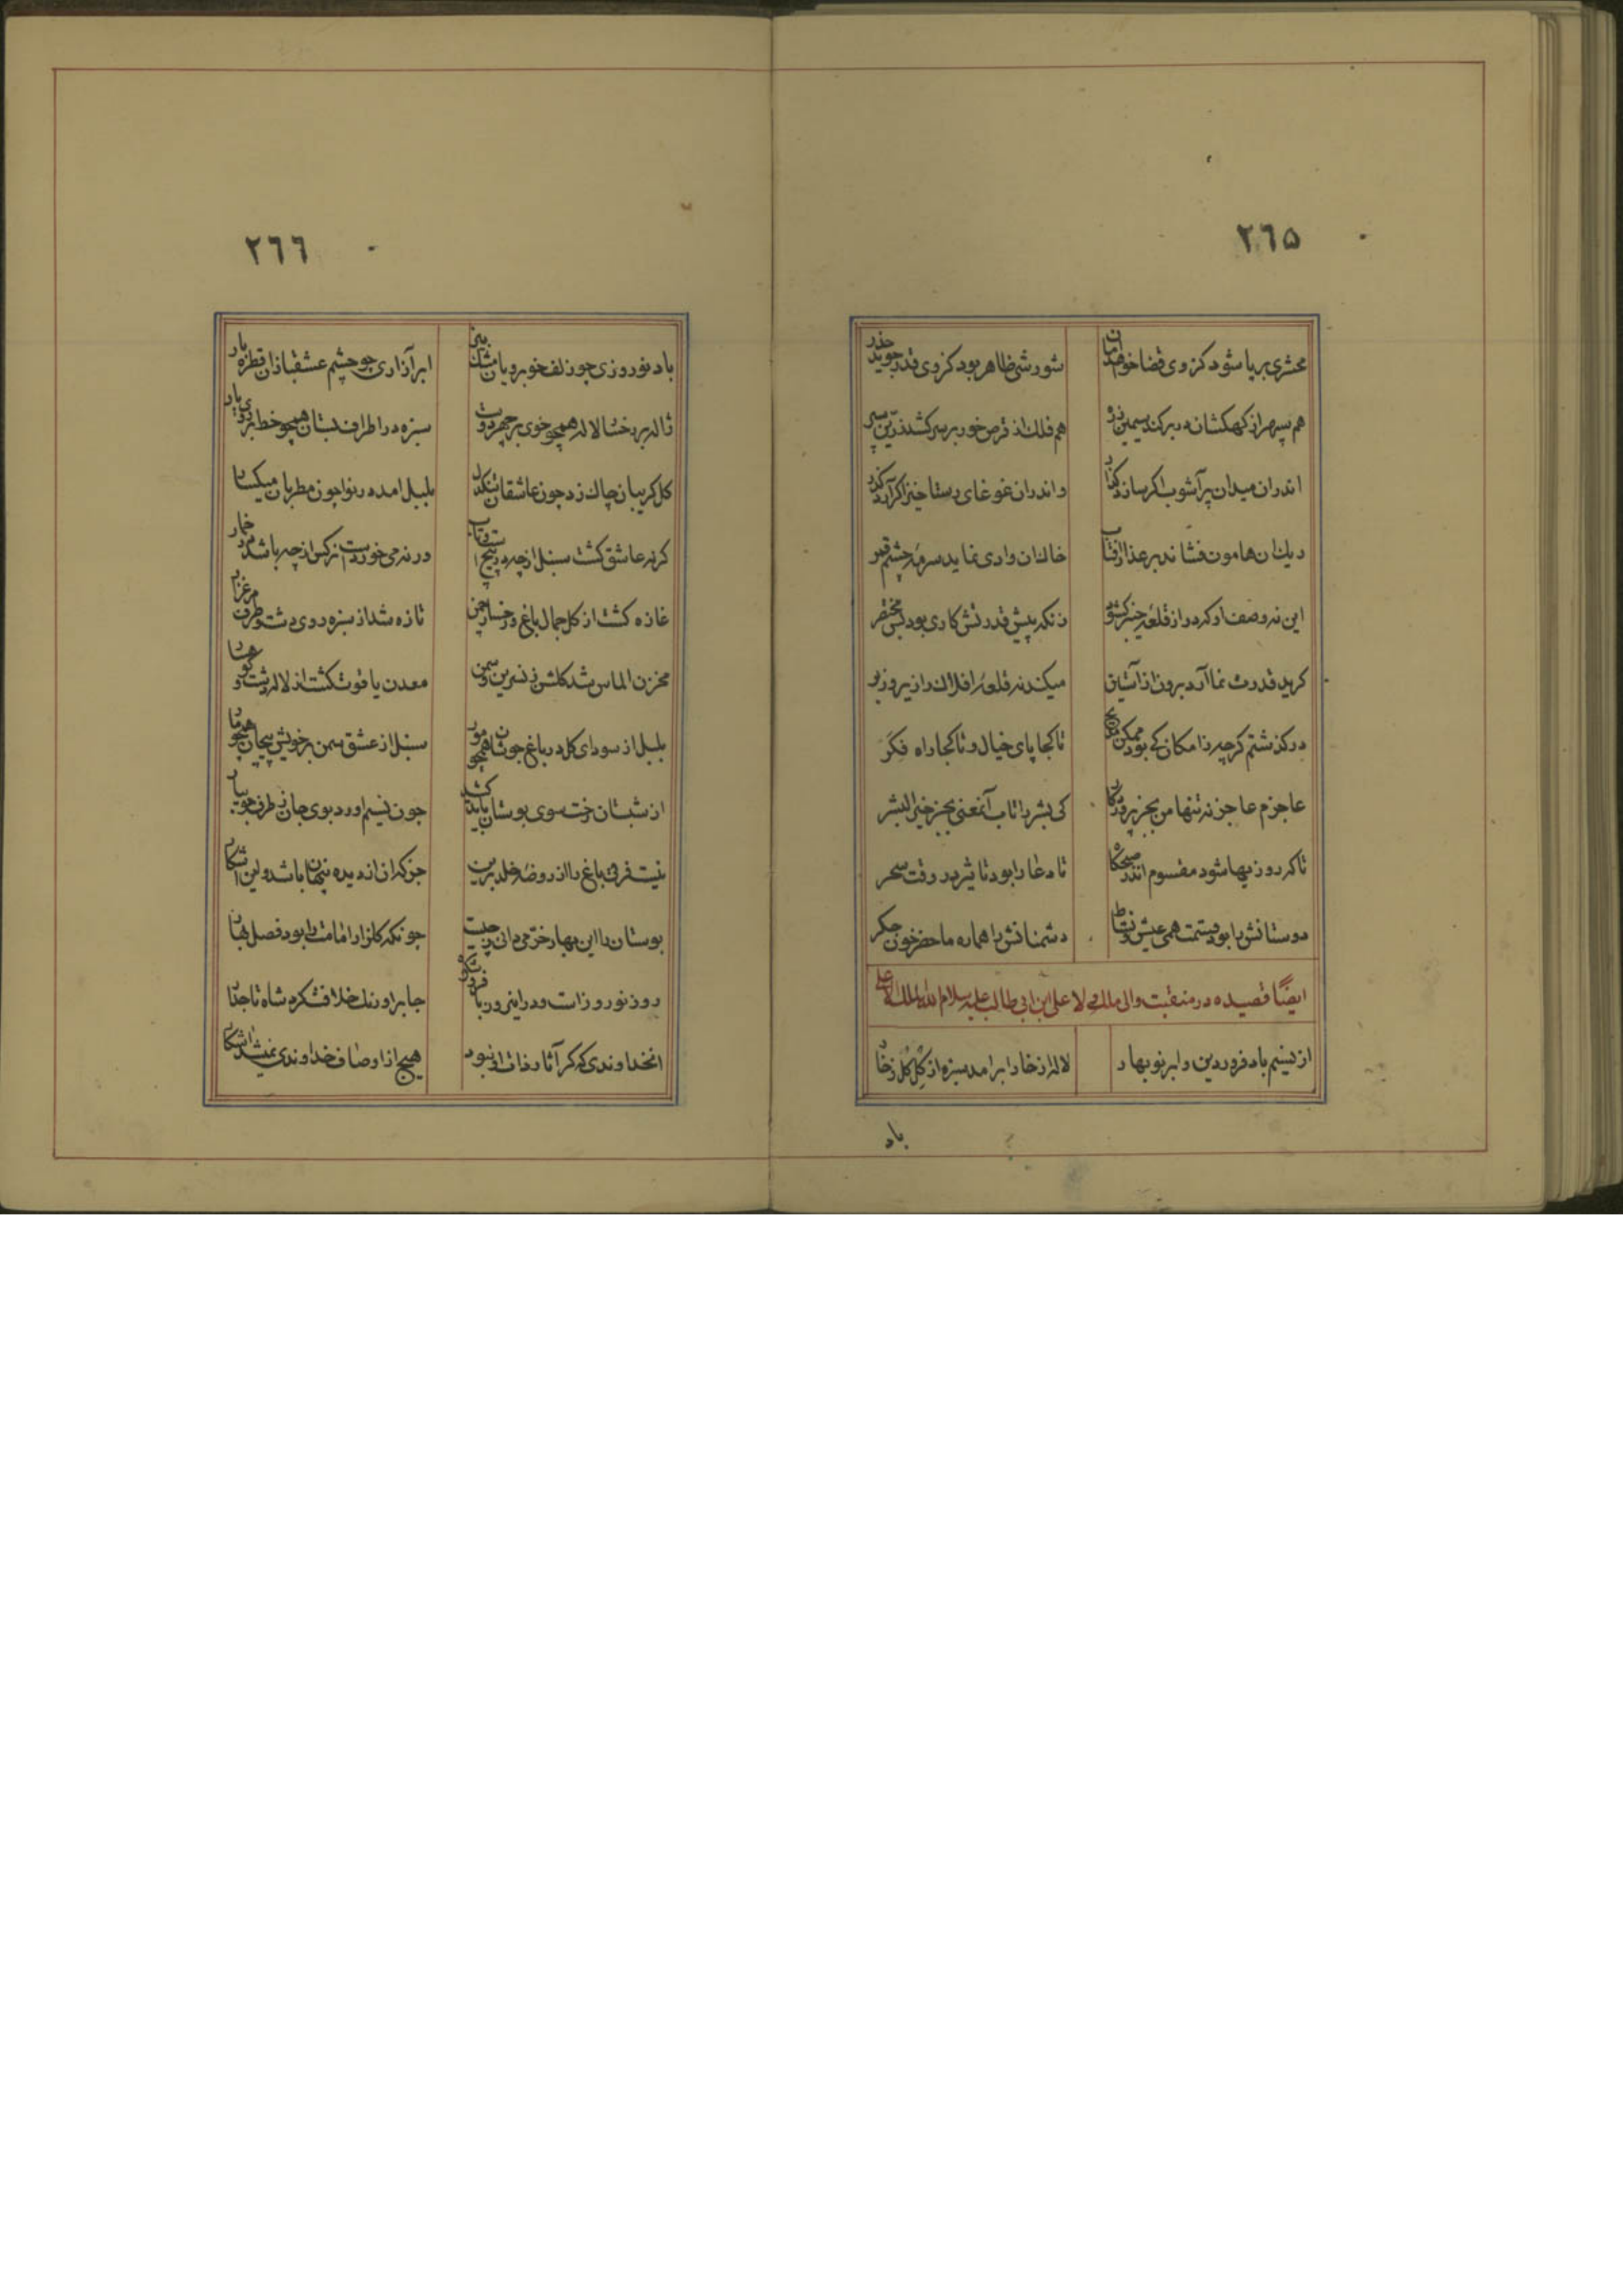 ٢٦٥
محشری برپا شود کز وی قضا خواهد امان
شورشی ظاهر بود کز وی قدر جوید حذر
هم سپهر از کهکشان در برکند سیمین زره
هم فلک از قرص خور بر سر کشد زرین سپر
اندران میدان پر آشوب اکر سازد کذار
واندران غوغای رستاخیز اکر آرد کذر
ریک ان هامون فشاند بر عذار افتاب
خاک ان وادی نماید سرمه چشم قمر
این نه وصف او که در از قلعه خیبر کشود
زنکه پیش قدرتش کاری بود بس مختصر
کر ید قدرت نما آرد برون از آستین
میکند نه قلعه افلاک را زیر و زبر
در کذشتم کرچه ز امکان کی بود ممکن
تا کجا پای خیال و تا کجا راه فکر
عاجزم عاجز نه تنها من بجز پروردکار
کی بشر را تاب آنمعنی بجز خیر البشر
تا که روزیها شود مقسوم اندر صبحکاه
تا دعا را بود تاثیر در وقت سحر
دوستانش را بود قسمت همی عیش و نشاط
دشمنانش را هماره ما حضر خون جکر
ایضًا قصیده در منقبت والی ملک ولا علی ابن ابی طالب علیه سلام الله الملک الاعلی
از نسیم باد فروردین و ابر نوبهار
لاله از خارا برامد سبزه از کِل کُل ز خار
باد
٢٦٦
باد نوروزی چو زلف خوبرویان مشک بیز
ابر آزاری چو چشم عشقبازان قطره بار
ژاله بر رخسار لاله همچو خوی بر چهر دوست
سبزه در اطراف بستان همچو خط بر روی یار
کل کریبان چاک زد چون عاشقان تنکدل
بلبل امد در نوا چون مطربان میکسار
کر نه عاشق کشت سنبل از چه در پیچ است و تاب
ور نه می خورده است نرکس از چه باشد در خمار
غازه کشت از کل جمال باغ و رخسار چمن
تازه شد از سبزه روی دشت و طرف مرغزار
مخزن الماس شد کلشن ز نسرین و سمن
معدن یاقوت کشت از لاله دشت و کوهسار
بلبل از سودای کل در باغ جوشان همچو مور
سنبل از عشق سمن بر خویش پیچان همچو مار
از شبستان رخت سوی بوستان باید کشید
چون نسیم اورد بوی جان ز طرف جویبار
نیست فرقی باغ را از روضه خلد برین
جز که ان از دیده پنهان باشد و این اشکار
بوستان را این بهار خرمی دانی ز چیست
چونکه کلزار امامت را بود فصل بهار
روز نوروز است و در این روز با فر و شکوه
جا بر اورنک خلافت کرد شاه تاجدار
انخداوندی که کر آثار ذات او نبود
هیچ از اوصاف خداوندی نمیشد اشکار